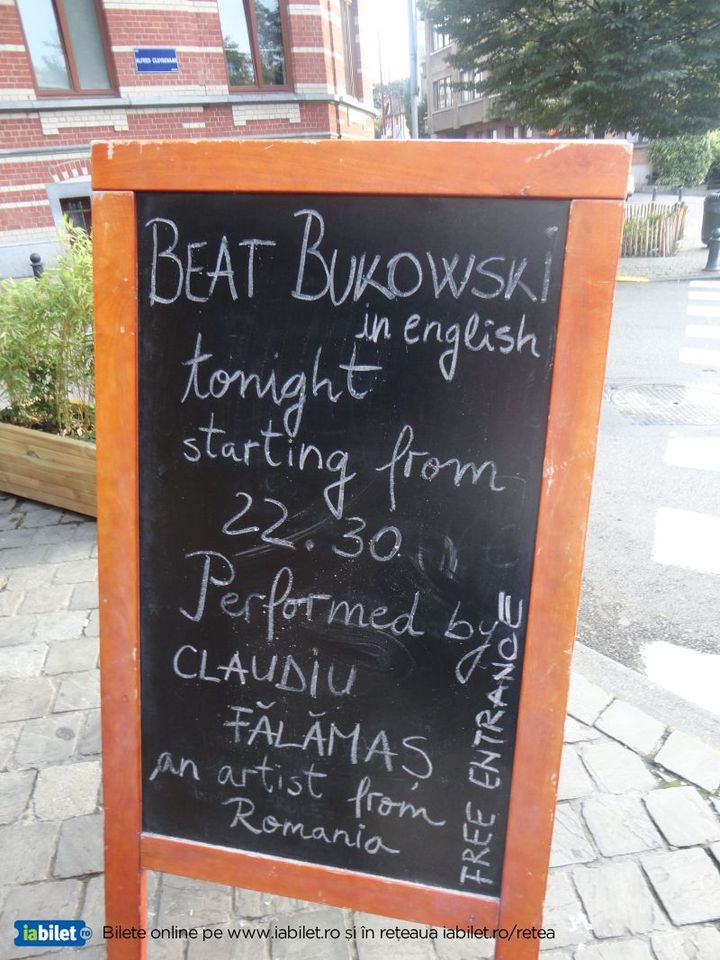 ALFRED CLUYSENAAR
BEAT BUKOWSKI
in english
tonight
starting from
22.30
Performed by
CLAUDIU
FĂLĂMAȘ
an artist from
Romania
FREE ENTRANCE
iabilet.ro Bilete online pe www.iabilet.ro și în rețeaua iabilet.ro/retea